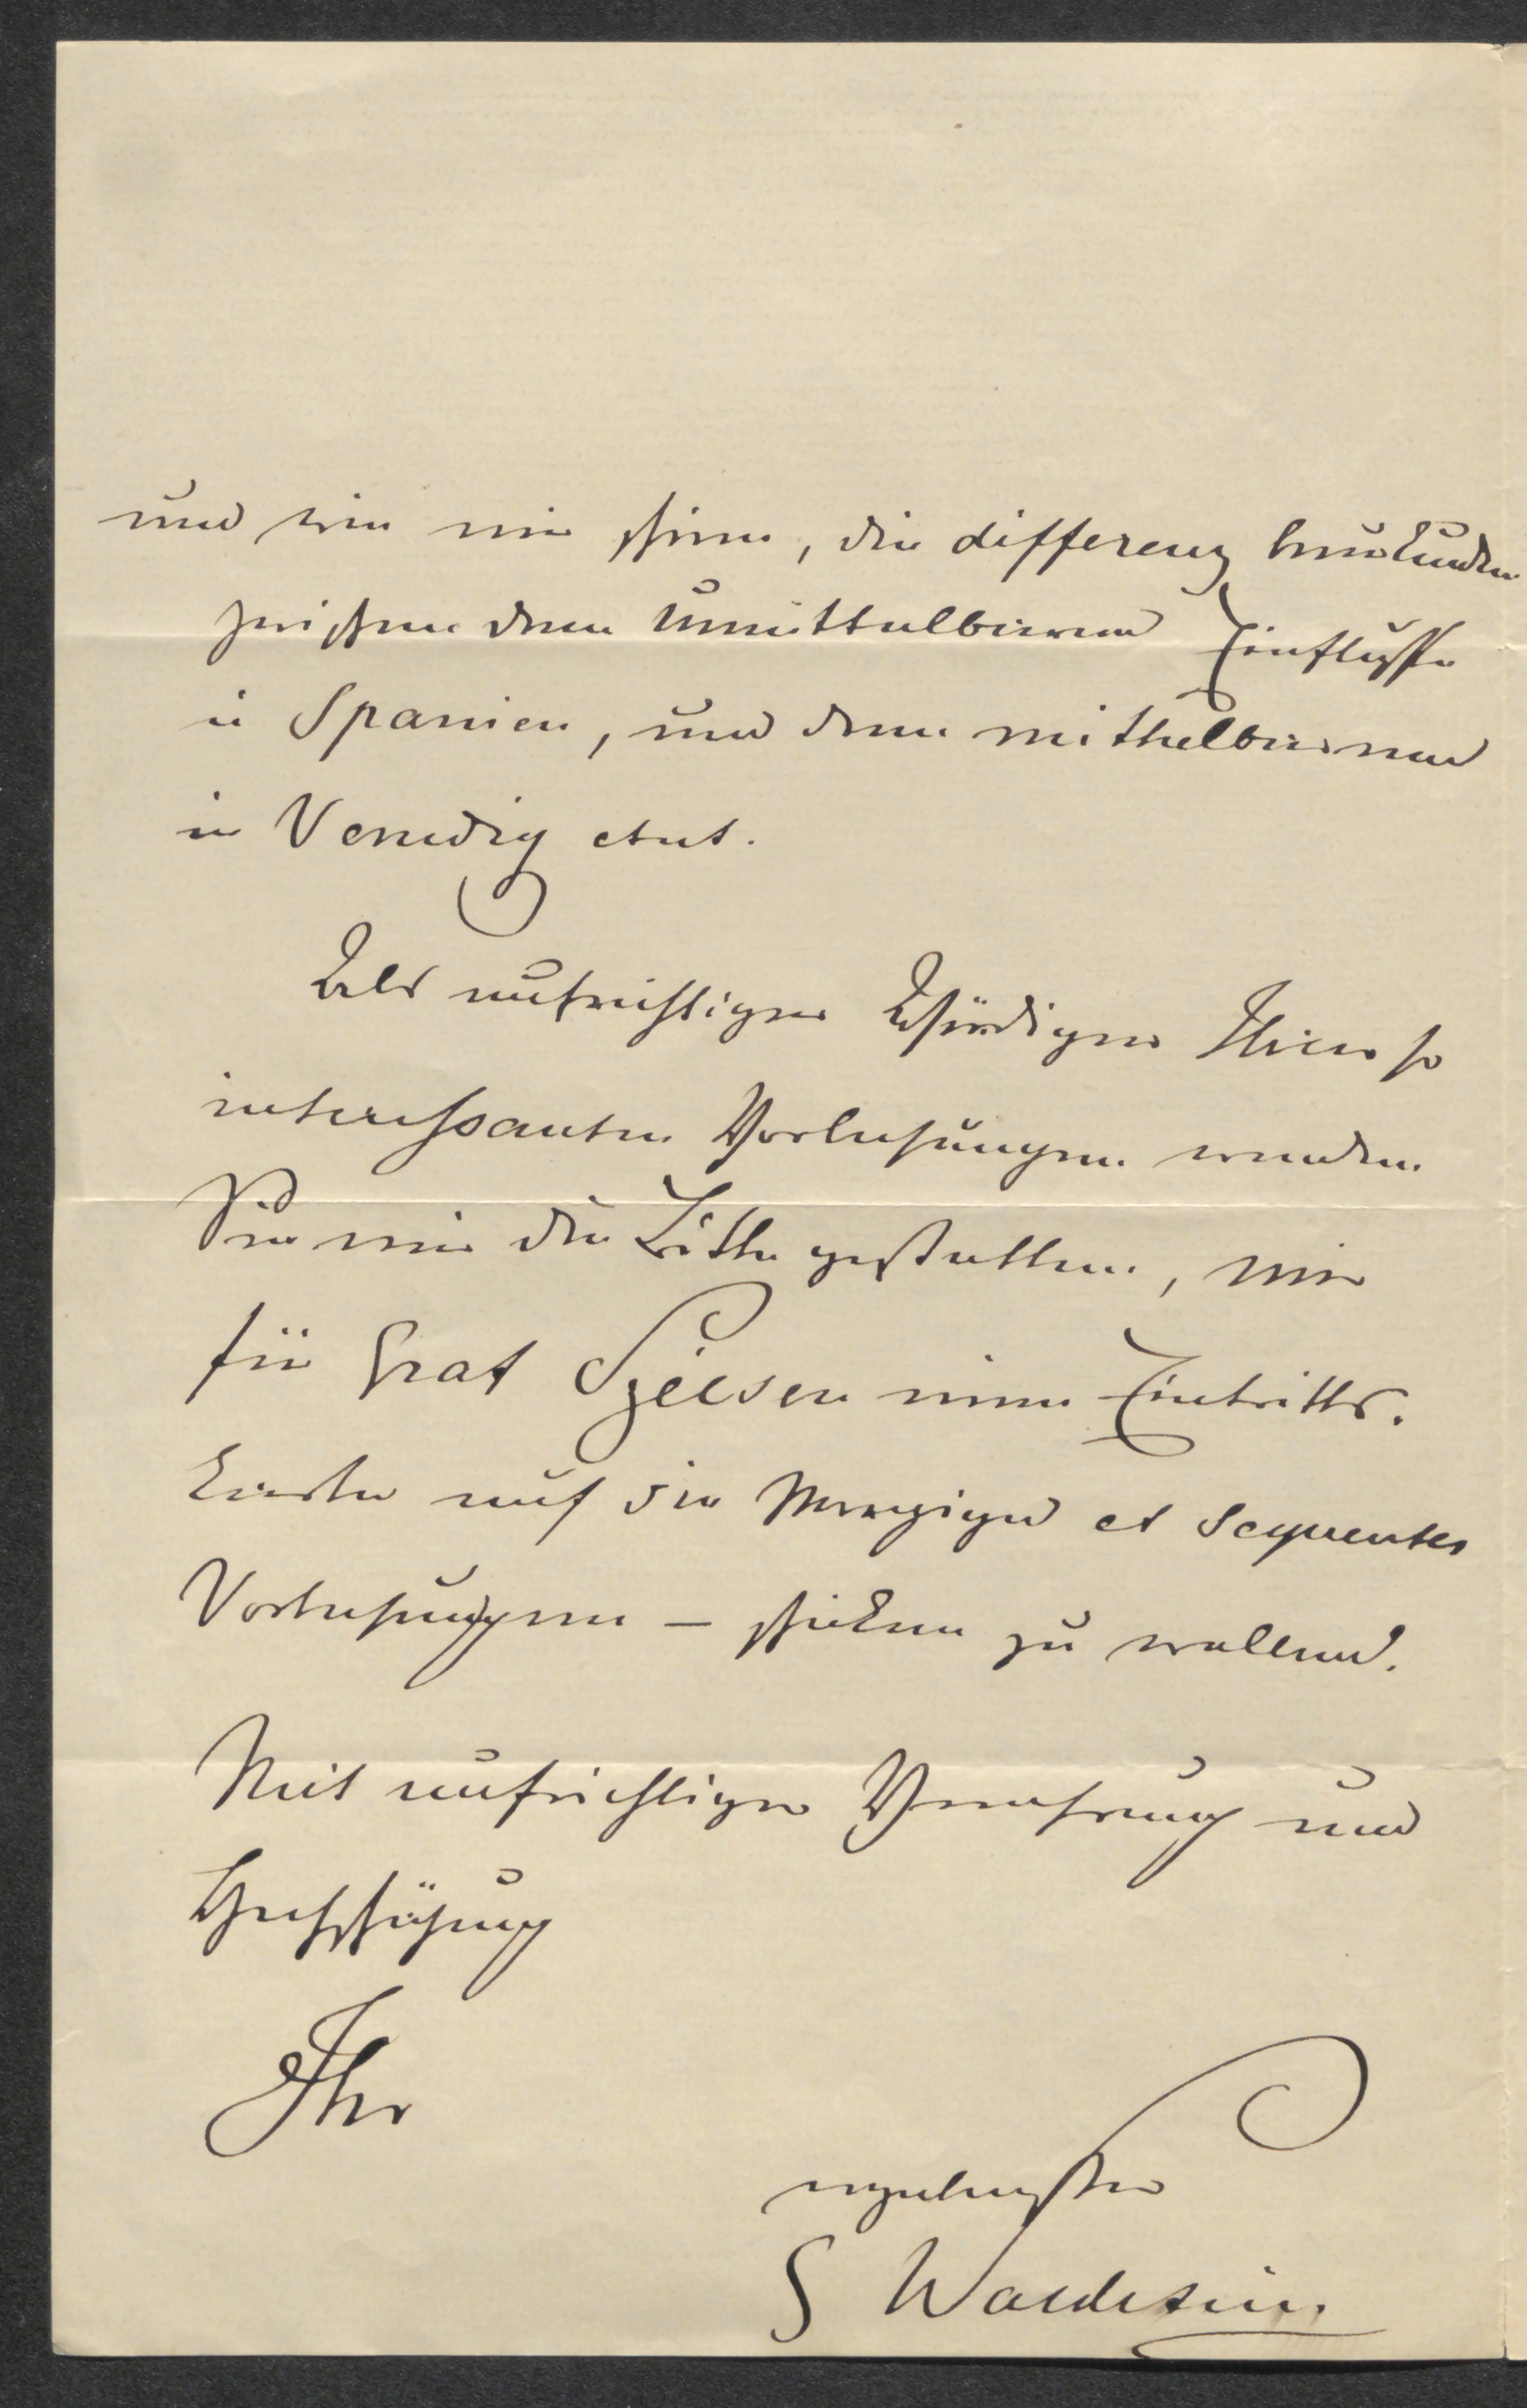 und wie mir schien, die differenz beurkunden
zwischen dem unmittelbaren Einflusse
in Spanien, und dem mittelbaren
in Venedig etut.
Als aufrichtiger Würdiger Ihrer so
interessanten Vorlesungen werden
Sie mir die Bitte gestatten, mir
für Graf Szécsen eine Eintritts.
karte auf die et sequentes
Vorlesungen – schicken zu wollen.
Mit aufrichtiger Verehrung und
Hochschätzung
Ihr
ergebenster
G Waldstein